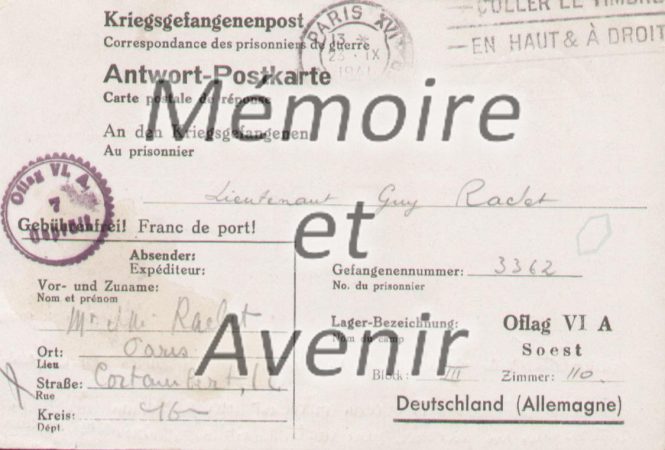 Kriegsgefangenenpost
Correspondance des prisonniers de guerre
PARIS XVI
13
23 · IX
1941
COLLER LE TIMBRE
EN HAUT & À DROITE
Antwort-Postkarte
Carte postale de réponse
Mémoire
An den Kriegsgefangenen
Au prisonnier
Lieutenant Guy Raclet
Oflag VI. A.
7
Geprüft
Gebührenfrei! Franc de port!
et
Absender:
Expéditeur:
Vor- und Zuname:
Nom et prénom
Mr Mme Raclet
Ort: Paris
Lieu
Straße: Cortambert,
Rue
Kreis: 16
Dépt.
Gefangenennummer: 3362
No. du prisonnier
Lager-Bezeichnung: Oflag VI A
Nom du camp
Soest
Avenir
Block: III Zimmer: 110.
Deutschland (Allemagne)